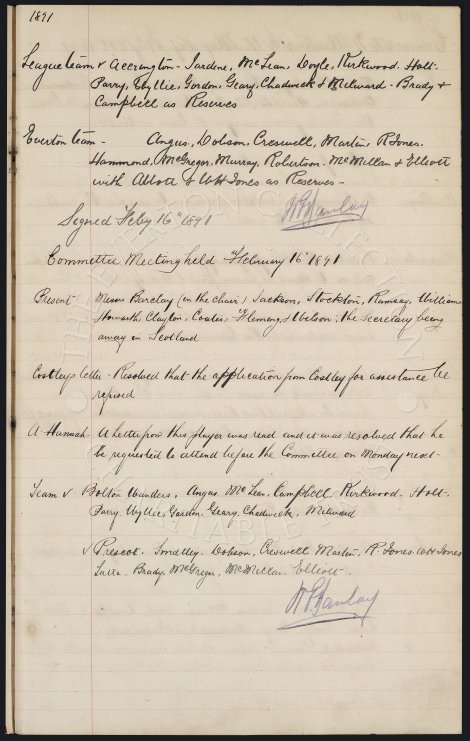 1891
League team v Accrington - Jardine, McLean, Doyle, Kirkwood, Holt-
Parry, Wyllie, Gordon, Geary, Chadwick & Milward - Brady &
Campbell as Reserves
Everton team - Angus, Dobson, Creswell, Martin, R Jones,
Hammond, McGregor, Murray, Robertson, McMillan & Elliott
with Abbott & WH Jones as Reserves -
Signed Feby 16th 1891
Committee Meeting held February 16th 1891
Present - Messrs Barclay (in the chair) Jackson, Stockton, Ramsay, Williams
Howarth, Clayton, Coates, Fleming & Wilson, the Secretary being
away in Scotland
Costleys letter - Resolved that the application from Costley for assistance be
refused
A Hannah - A letter from this player was read and it was resolved that he
be requested to attend before the Committee on Monday next -
Team v Bolton Wanders, Angus, McLean, Campbell, Kirkwood, Holt-
Parry, Wyllie, Gordon, Geary, Chadwick, Milward
v Prescot - Smalley, Dobson, Creswell Martin, R Jones, WH Jones
Brady, McGregor, McMillan, Elliott -